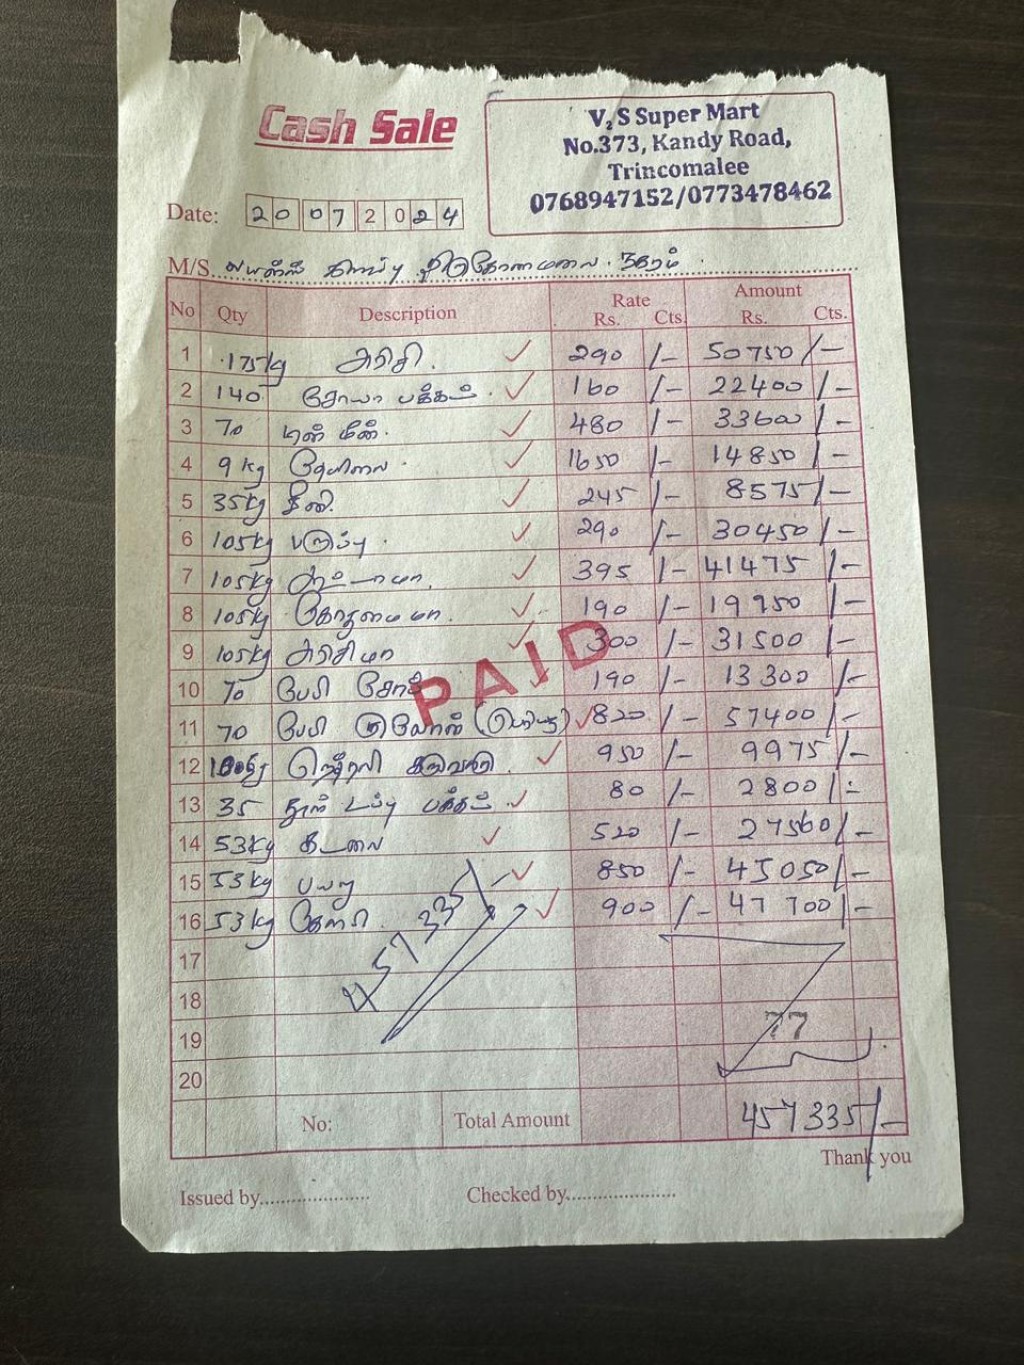 Cash Sale
V₂S Super Mart
No.373, Kandy Road,
Trincomalee
0768947152/0773478462
Date: 20 07 2024
M/S. லயன்ஸ் கிளப் திருகோணமலை நகரம்.
No Qty Description Rate Rs. Cts. Amount Rs. Cts.
1 175kg அரிசி. 290 /- 50750 /-
2 140 சோயா பக்கட். 160 /- 22400 /-
3 70 டின் மீன். 480 /- 33600 /-
4 9kg தேயிலை. 1650 /- 14850 /-
5 35kg சீனி. 245 /- 8575/-
6 105kg பருப்பு. 290 /- 30450 /-
7 105kg ஆட்டாமா. 395 /- 41475 /-
8 105kg கோதுமைமா. 190 /- 19950 /-
9 105kg அரிசிமா 300 /- 31500 /-
10 70 பேபி சோப் 190 /- 13300 /-
11 70 பேபி 820 /- 57400 /-
12 கருவாடு. 950 /- 9975 /-
13 35 பக்கட் 80 /- 2800 /-
14 53kg கடலை 520 /- 27560 /-
15 53kg பயறு 850 /- 45050 /-
16 53kg கௌபி. 900 /- 47700 /-
17
18
19
20
PAID
457335/-
77
No: Total Amount 457335/-
Thank you
Issued by.................... Checked by....................